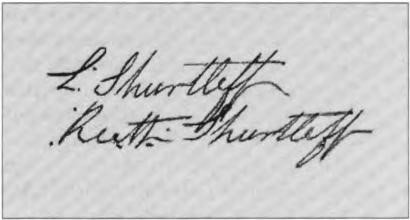 L. Shurtleff
Ruth Shurtleff